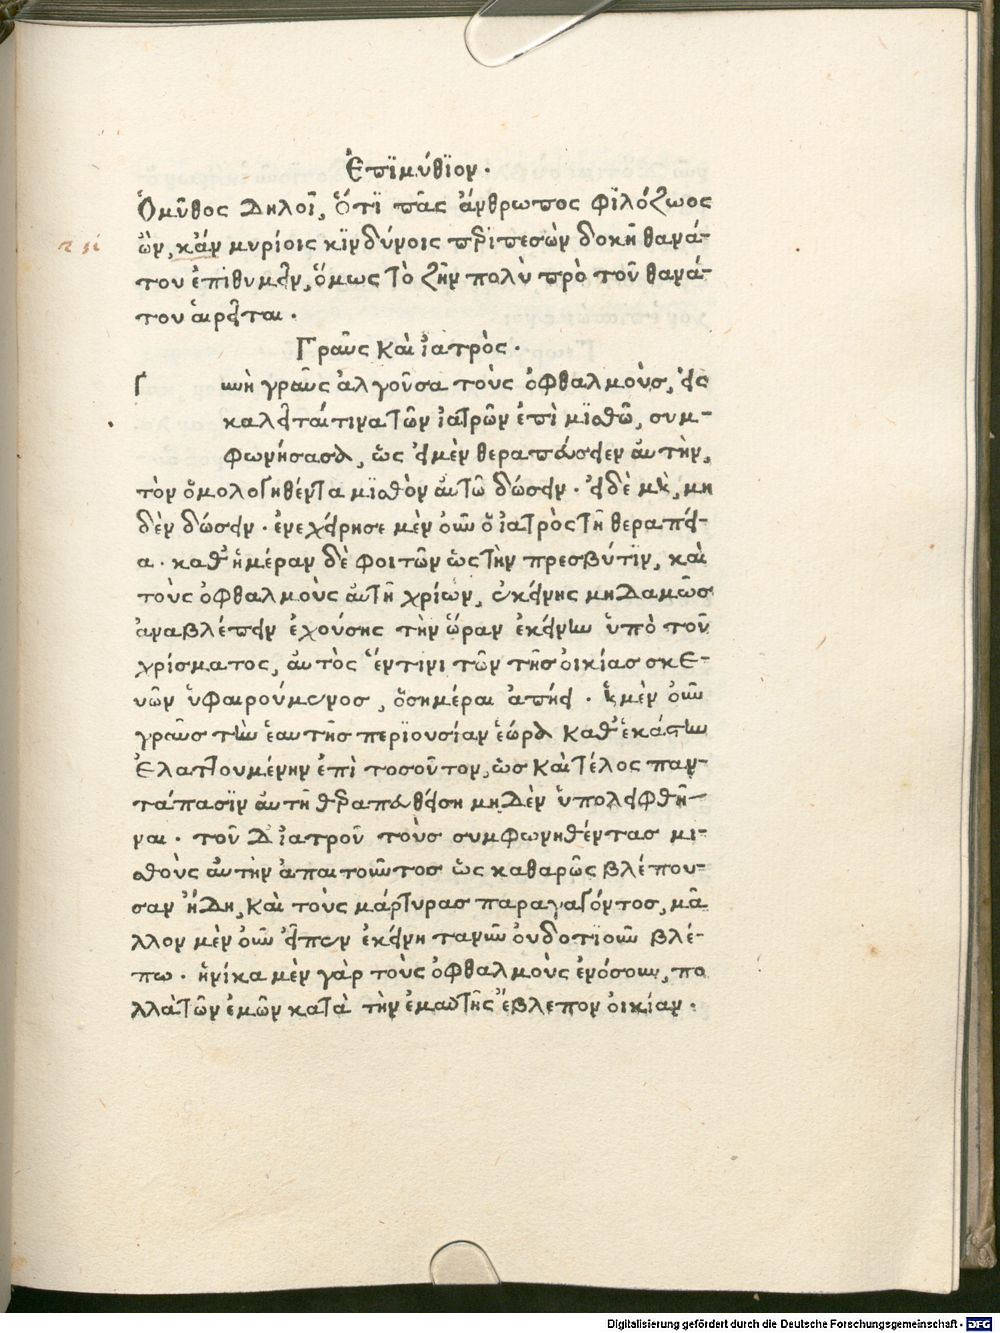 Ἐπϊμύθϊον.
Ὁμῦθος δηλοῖ, ὅτϊ πᾶς ἄνθρωπος φϊλόζωος
ὢν, κἂν μυρίοις κϊνδύνοις περιπεσὼν δοκῆ θανά-
του ἐπιθυμεῖν, ὅμως τὸ ζῆν πολὺ πρὸ τοῦ θανά-
του αἱρεῖται.
Γραῦς καὶ ἰατρὸς.
Γυνὴ γραῦς ἀλγοῦσα τοὺς ὀφθαλμοὺς, εἰς
καλεῖταί τινα τῶν ἰατρῶν ἐπὶ μϊσθῶ, συμ-
φωνήσασα, ὡς εἰ μὲν θεραπεύσειεν αὐτὴν,
τὸν ὁμολογηθέντα μϊσθὸν αὐτῶ δώσειν. εἰ δὲ μὴ, μη
δὲν δώσειν. ἐνεχείρησε μὲν οὖν ὁ ἰατρὸς τῆ θεραπεί-
α. καθ' ἡμέραν δὲ φοιτῶν ὡς τὴν πρεσβύτϊν, καὶ
τοὺς ὀφθαλμοὺς αὐτῆ χρίων, ἐκείνης μηδαμῶς
ἀναβλέπειν ἐχούσης τὴν ὥραν ἐκείνην ὑπὸ τοῦ
χρίσματος, αὐτὸς ἕν τινι τῶν τῆς οἰκίας σκε-
υῶν ὑφαιρούμενος, ὁσημέραι ἀπήει. ἡ μὲν οὖν
γραῦς τὴν ἑαυτῆς περϊουσίαν ἑώρα καθ' ἑκάστην
ἐλαττουμένην ἐπὶ τοσοῦτον, ὡς καὶ τέλος παν-
τάπασϊν αὐτῆ θεραπευθείση μηδὲν ὑπολειφθῆ-
ναι. τοῦ δ' ἰατροῦ τοὺς συμφωνηθέντας μι-
σθοὺς αὐτὴν ἀπαιτοῦντος ὡς καθαρῶς βλέπου-
σαν ἤδη, καὶ τοὺς μάρτυρας παραγαγόντος, μᾶ
λλον μὲν οὖν εἶπεν ἐκείνη τανῦν οὐδοτϊοῦν βλέ-
πω. ἡνίκα μὲν γὰρ τοὺς ὀφθαλμοὺς ἐνόσουν, πο
λλὰ τῶν ἐμῶν κατὰ τὴν ἐμαυτῆς ἔβλεπον οἰκίαν.
Digitalisierung gefördert durch die Deutsche Forschungsgemeinschaft - DFG